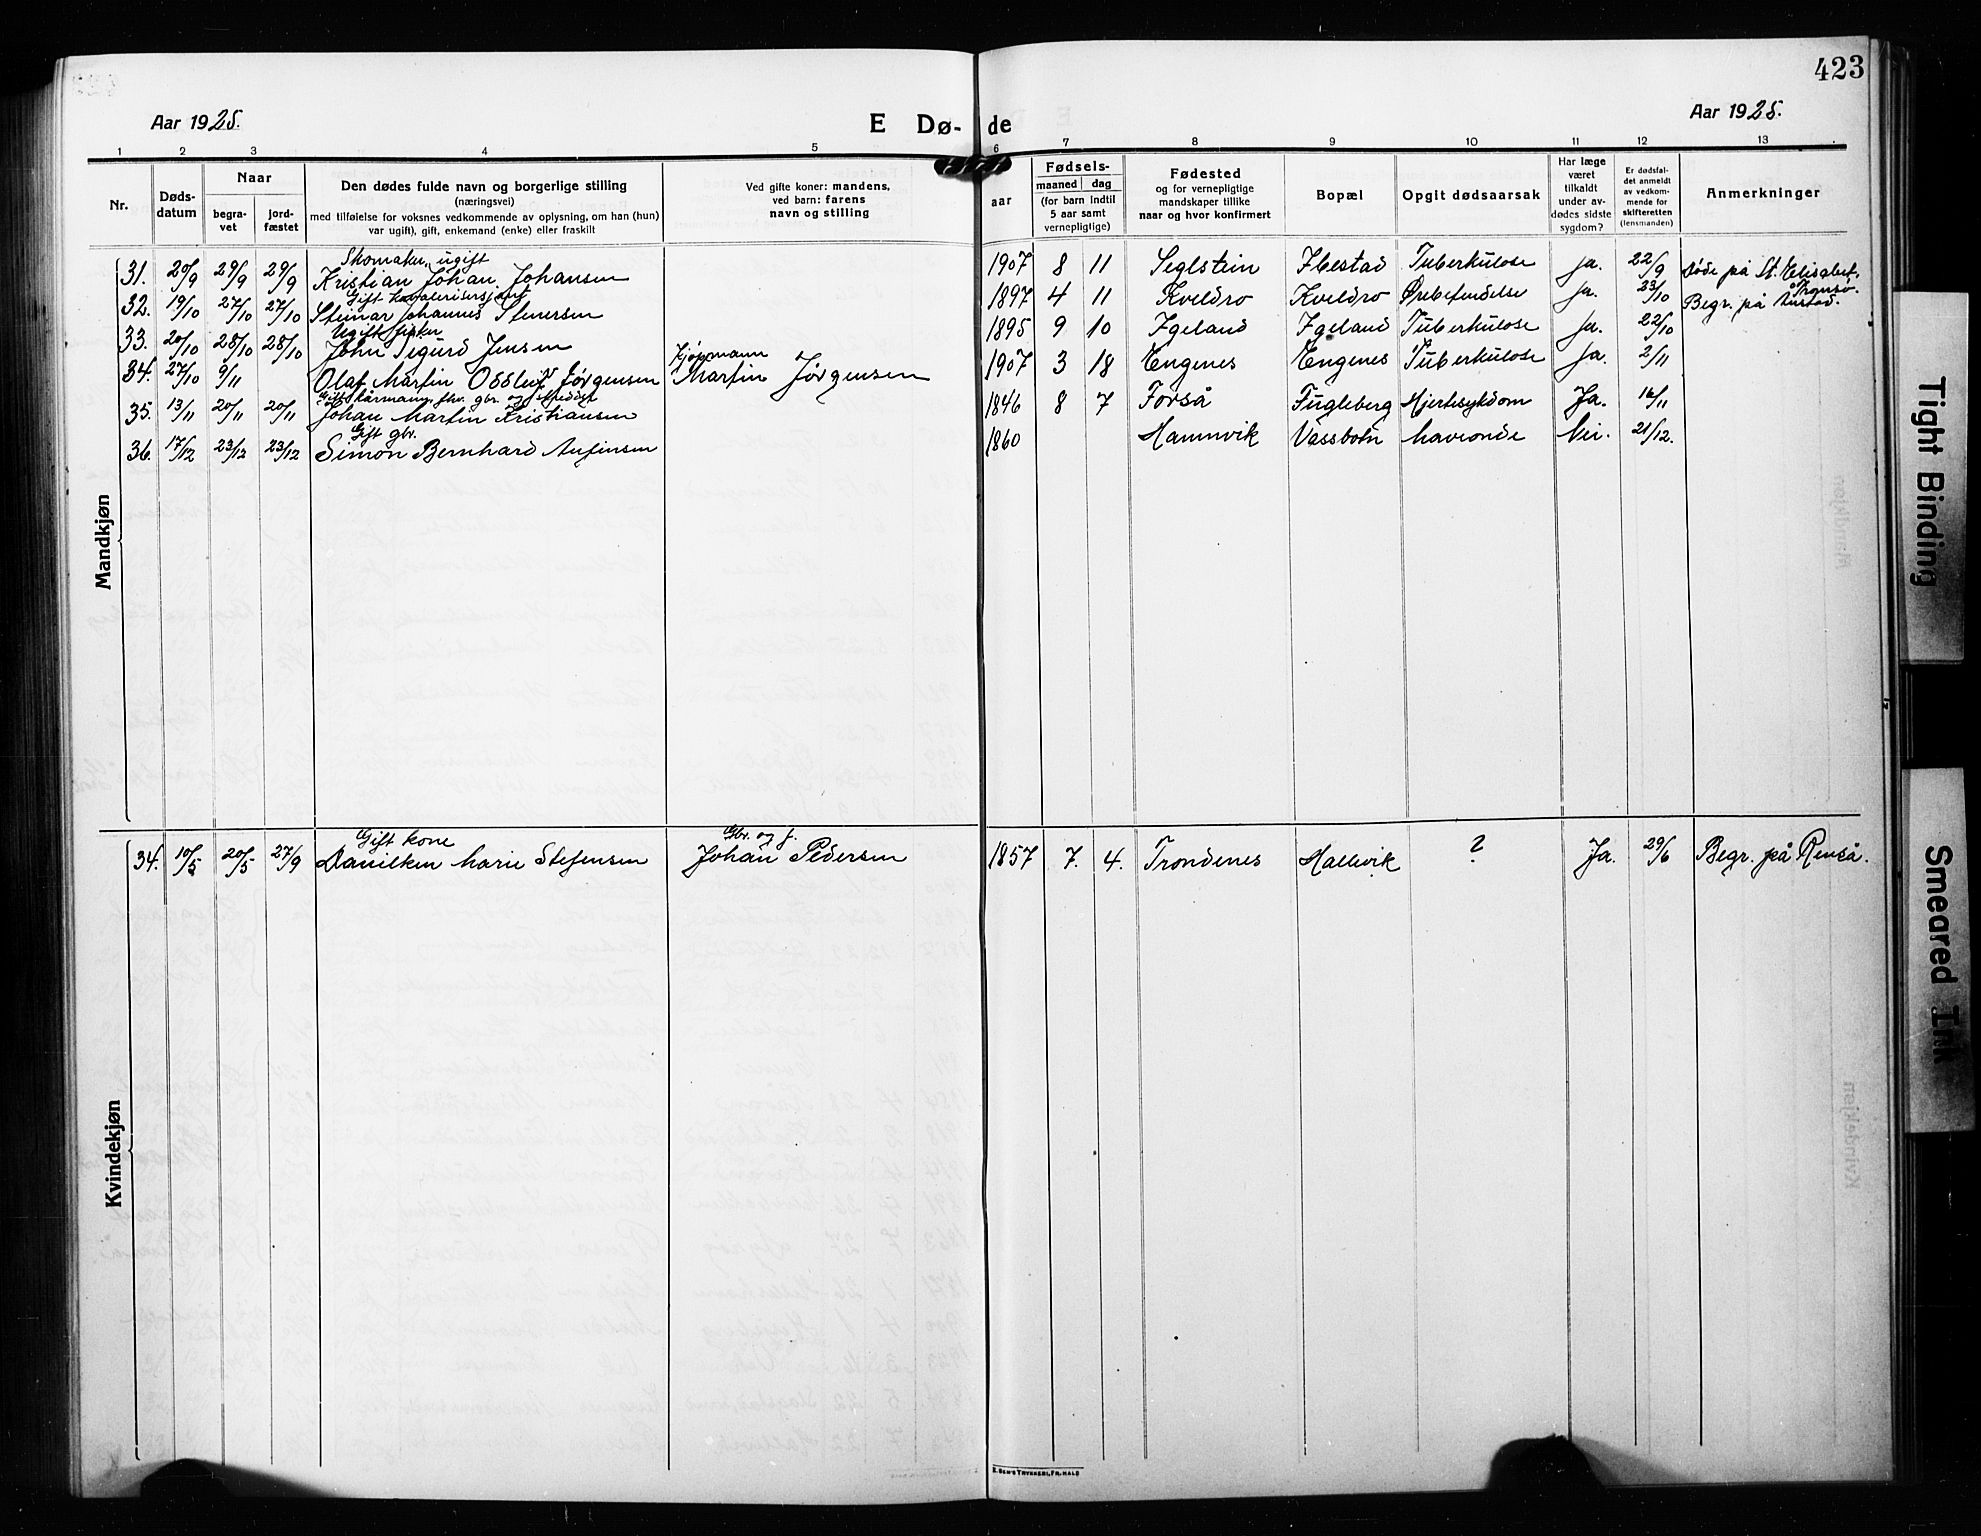 423
Aar 1925.
E Dø- de
Aar 1925.
1 2 3 4 5 6 7 8 9 10 11 12 13
Nr.
Døds-
datum
Naar
begra-
vet
jord-
fæstet
Den dødes fulde navn og borgerlige stilling
(næringsvei)
med tilføielse for voksnes vedkommende av oplysning, om han (hun)
var ugift), gift, enkemand (enke) eller fraskilt
Ved gifte koner: mandens,
ved barn: farens
navn og stilling
aar
Fødsels-
maaned dag
(for barn indtil
5 aar samt
vernepligtige)
Fødested
og for vernepligtige
mandskaper tillike
naar og hvor konfirmert
Bopæl
Opgit dødsaarsak
Har læge
været
tilkaldt
under av-
dødes sidste
sygdom?
Er dødsfal-
det anmeldt
av vedkom-
mende for
skifteretten
(lensmanden)
Anmerkninger
Mandkjøn
Skomaker, ugift
31. 20/9 29/9 29/9 Kristian Johan Johansen 1907 8 11 Seglstein Ibestad Tuberkulose Ja. 22/9 Døde på St. Elisabet, Tromsø.
Gift kavalerisersjant
32. 19/10 27/10 27/10 Steinar Johannes Steinersen 1897 4 11 Kveldro Kveldro Ørebetendelse Ja. 23/10 Begr. på
Ugift fisker
33. 20/10 28/10 28/10 John Sigurd Jensen 1895 9 10 Igeland Igeland Tuberkulose Ja. 22/10
Kjøpmann
34. 27/10 9/11 Olaf Martin Oddleif Jørgensen Martin Jørgensen 1907 3 18 Engenes Engenes Tuberkulose Ja. 2/11
Gift kårmann, fhv. gbr. og
35. 13/11 20/11 20/11 Johan Martin Kristiansen 1846 8 7 Forså Fugleberg Hjertesykdom Ja. 16/11
Gift gbr.
36. 17/12 23/12 23/12 Simon Bernhard Anfinsen 1860 Hamnvik Vassbotn havronde Nei. 21/12.
Kvindekjøn
Gift kone Gbr. og f.
34. 10/5 20/5 27/9 Danilken Marie Stefensen Johan Pedersen 1857 7. 4. Trondenes Hallevik ? Ja. 29/6 Begr. på Renså.
E. SEM'S TRYKKERI, FR.HALD
Tight Binding
Smeared Ink